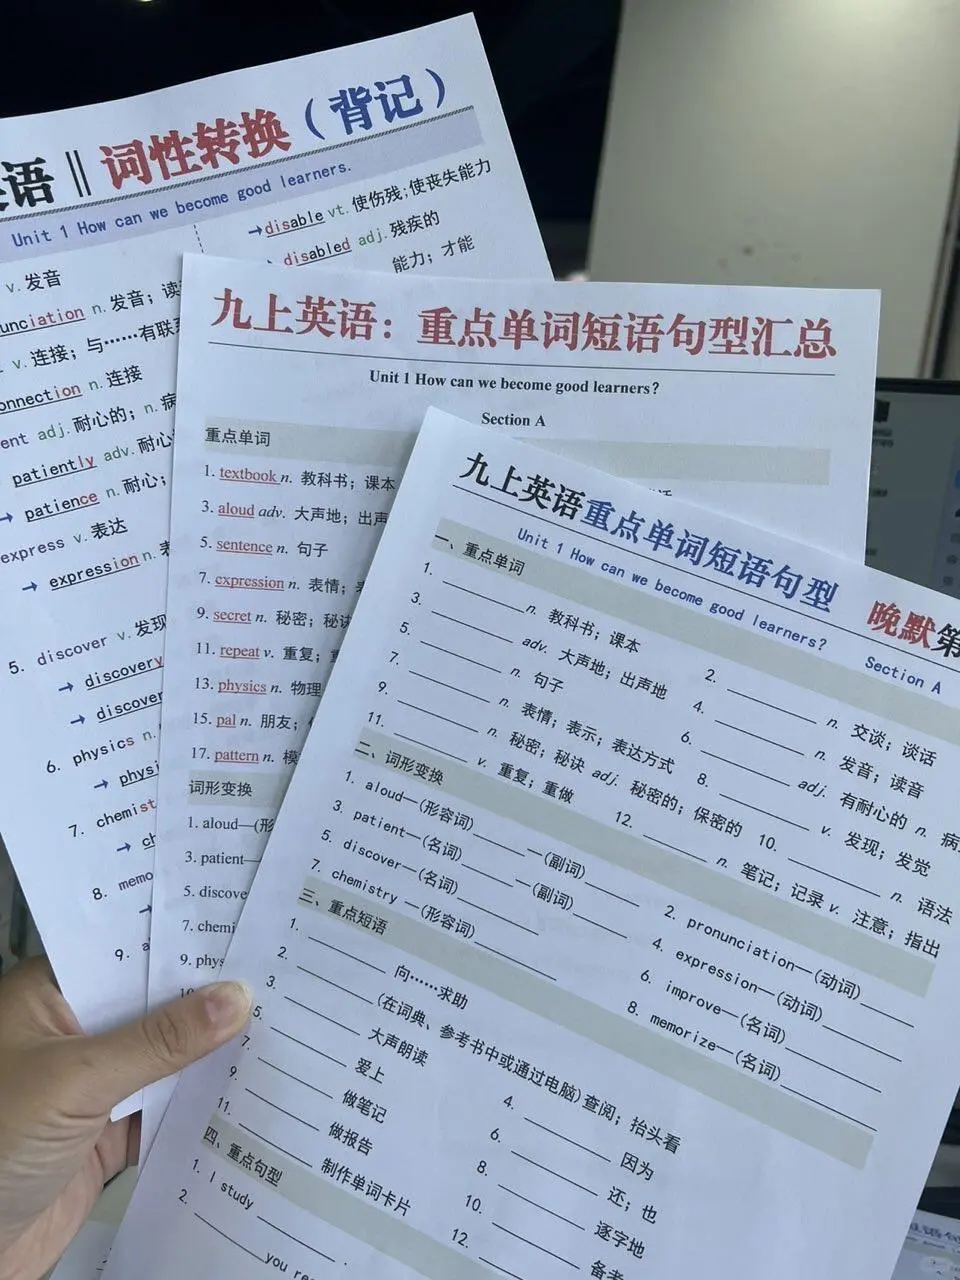 语 || 词性转换（背记）
Unit 1 How can we become good learners.
v. 发音
unciation n. 发音；读
v. 连接；与……有联系
onnection n. 连接
ent adj. 耐心的；n. 病
patiently adv. 耐心
→ patience n. 耐心；
express v. 表达
→ expression n. 表
5. discover v. 发现
→ discovery
→ discover
6. physics n.
→ physi
7. chemist
→ ch
8. memo
→
9. a
→disable vt. 使伤残；使丧失能力
→ disabled adj. 残疾的
能力；才能
九上英语：重点单词短语句型汇总
Unit 1 How can we become good learners?
Section A
重点单词
1. textbook n. 教科书；课本
3. aloud adv. 大声地；出声
5. sentence n. 句子
7. expression n. 表情；表
9. secret n. 秘密；秘诀
11. repeat v. 重复；重
13. physics n. 物理
15. pal n. 朋友；
17. pattern n. 模
词形变换
1. aloud—(形
3. patient—
5. discove
7. chemi
9. phys
九上英语重点单词短语句型 晚默第
Unit 1 How can we become good learners? Section A
一、重点单词
1. ________ n. 教科书；课本
2. ________ n. 交谈；谈话
3. ________ adv. 大声地；出声地
4. ________ n. 发音；读音
5. ________ n. 句子
6. ________ adj. 有耐心的 n. 病
7. ________ n. 表情；表示；表达方式
8. ________ v. 发现；发觉
9. ________ n. 秘密；秘诀 adj. 秘密的；保密的
10. ________ n. 语法
11. ________ v. 重复；重做
12. ________ n. 笔记；记录 v. 注意；指出
二、词形变换
1. aloud—(形容词)________—(副词)________
2. pronunciation—(动词)________
3. patient—(名词)________—(副词)________
4. expression—(动词)________
5. discover—(名词)________
6. improve—(名词)________
7. chemistry —(形容词)________
8. memorize—(名词)________
三、重点短语
1. ________ 向……求助
2. ________ (在词典、参考书中或通过电脑)查阅；抬头看
3. ________ 大声朗读
4. ________ 因为
5. ________ 爱上
6. ________ 还；也
7. ________ 做笔记
8. ________ 逐字地
9. ________ 做报告
10. ________ 备考
11. ________ 制作单词卡片
12. ________
四、重点句型
1. I study ________ .
2. ________you rea